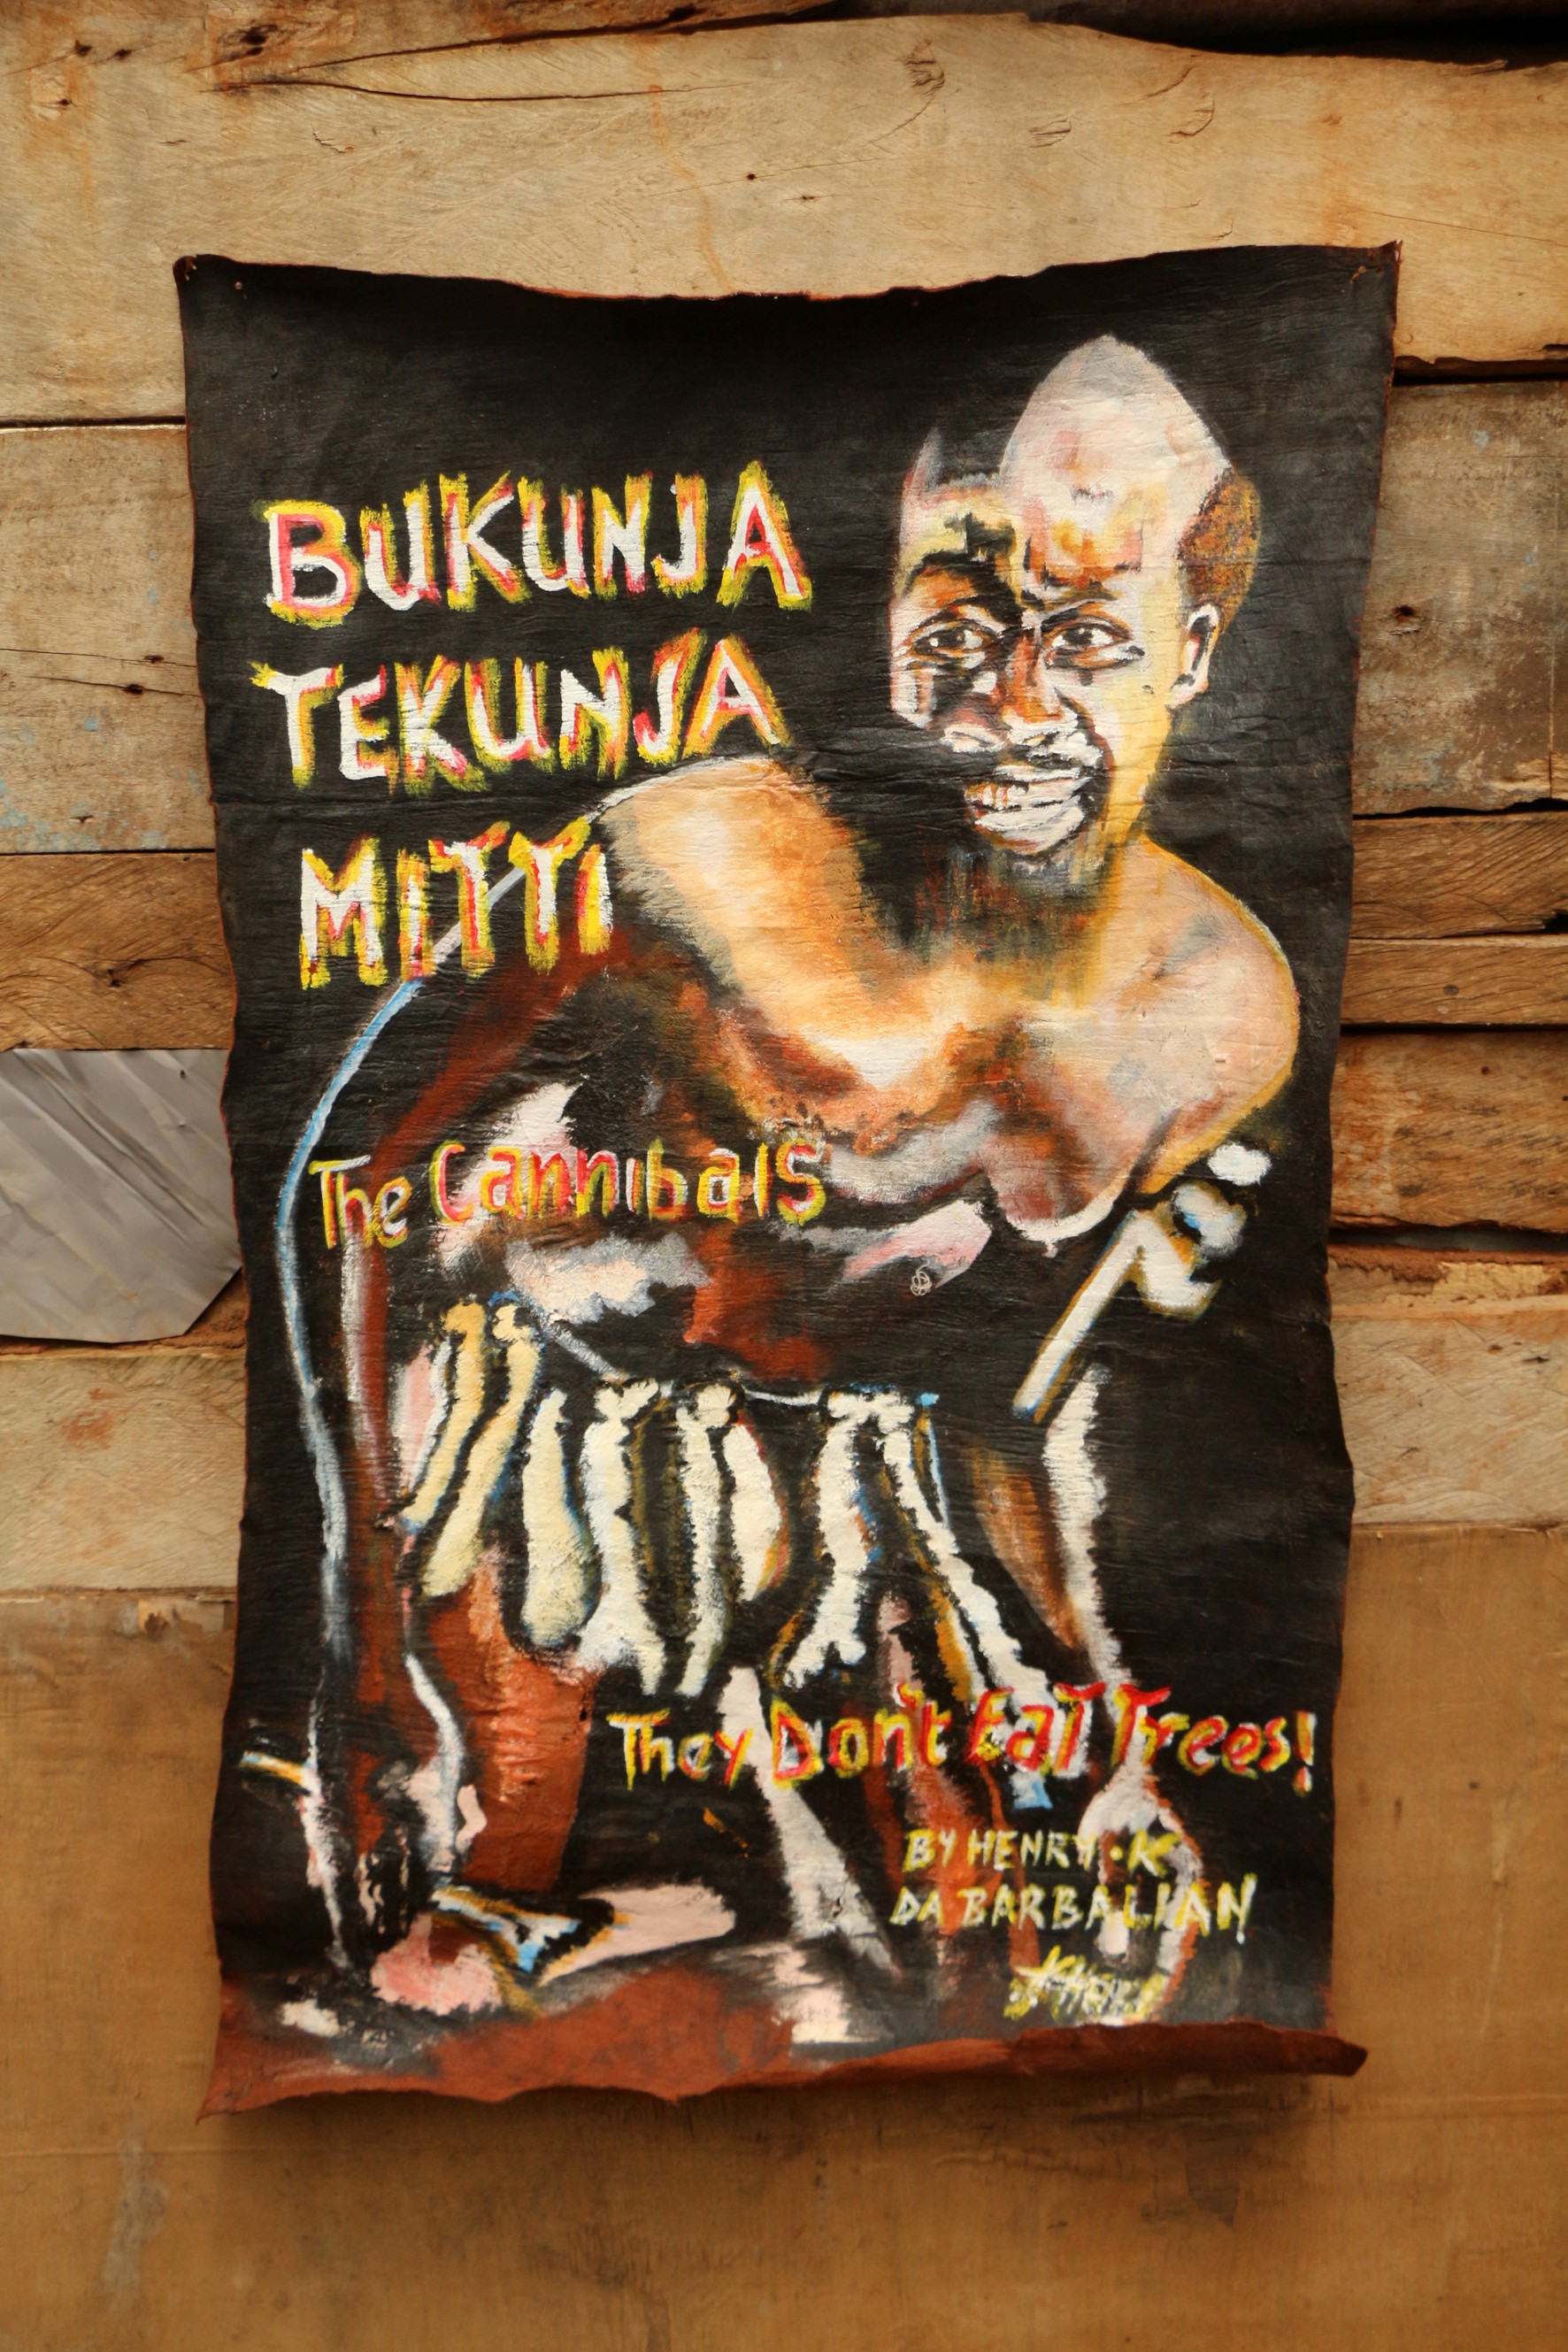 BUKUNJA
TEKUNJA
MITTI
The Cannibals
They Don't Eat Trees!
BY HENRY.K
DA BARBALIAN